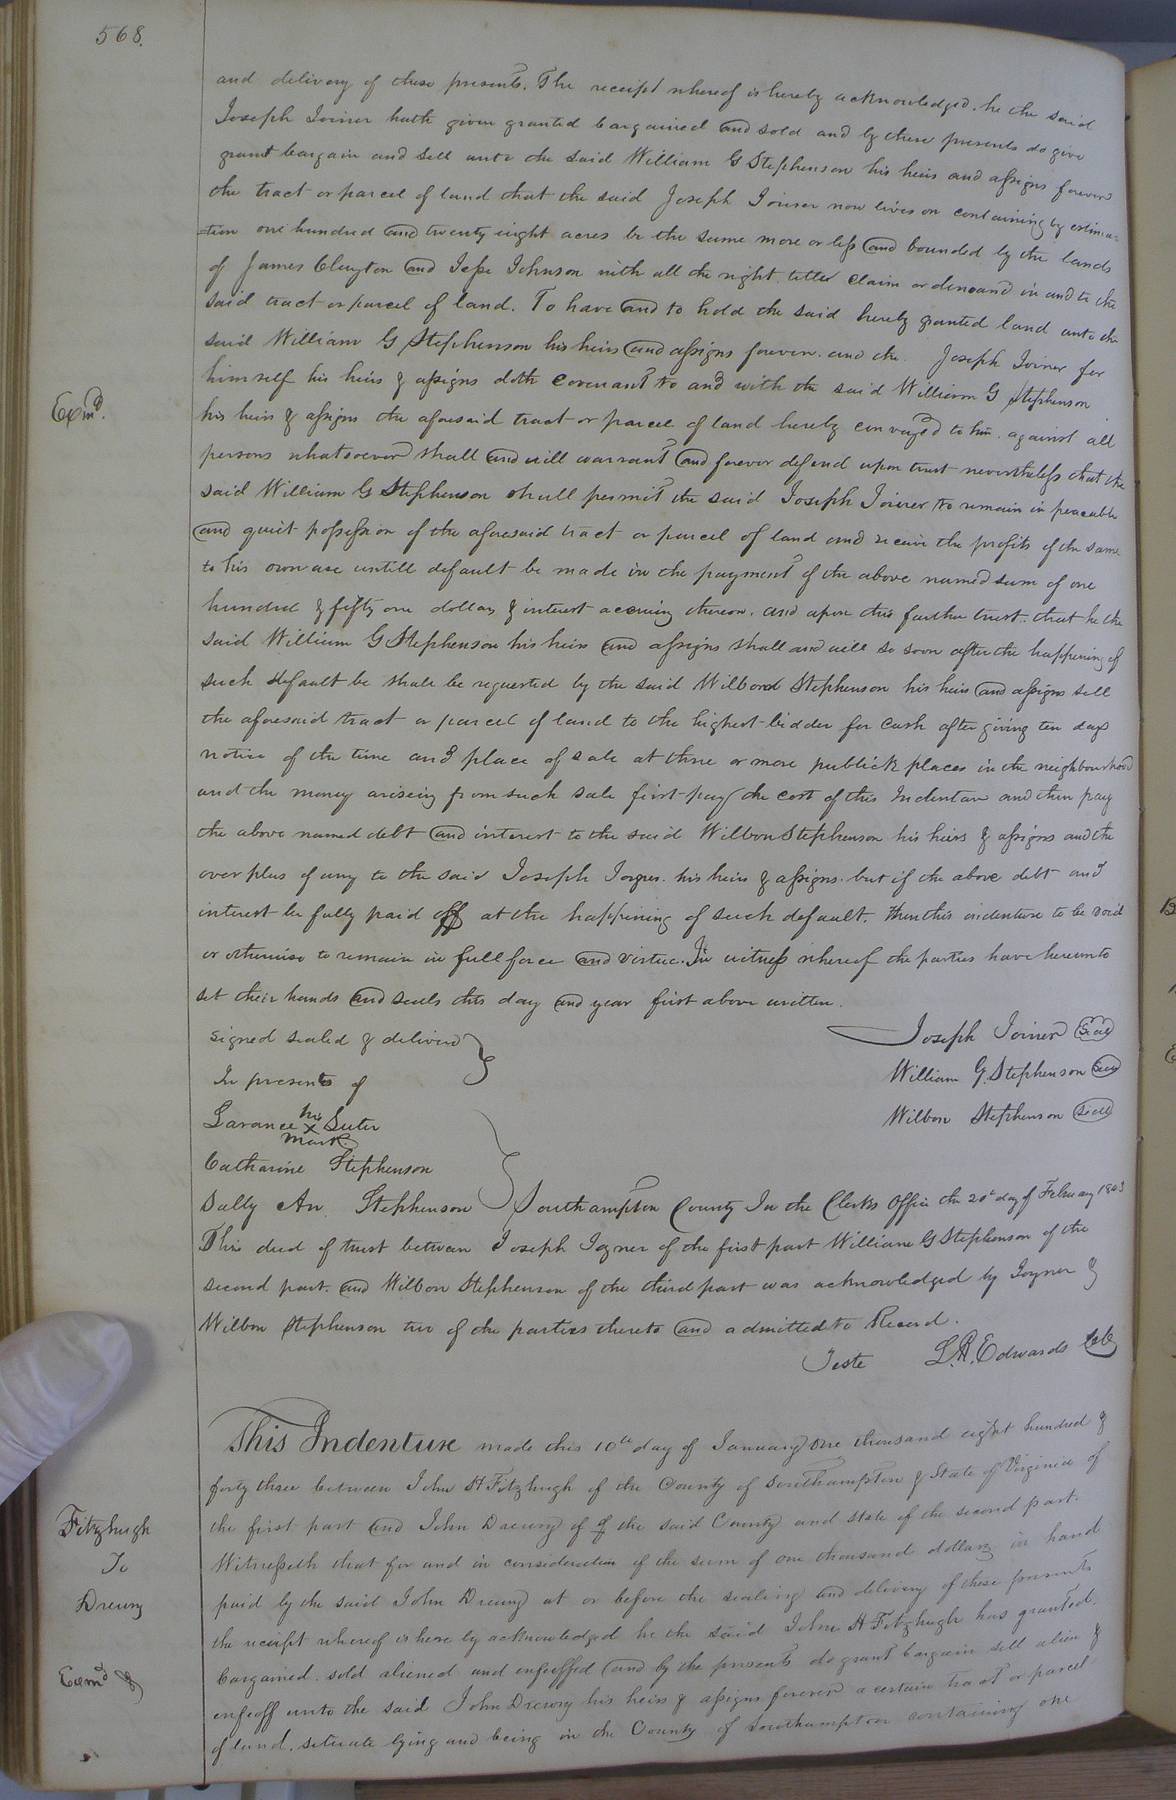 568.
and delivery of these presents. The receipt whereof is hereby acknowledged. he the said
Joseph Joiner hath given granted bargained and sold and by these presents do give
grant bargain and sell unto the said William G Stephenson his heirs and assigns forever
the tract or parcel of land that the said Joseph Joiner now lives on containing by estima=
=tion one hundred and twenty eight acres be the same more or less and bounded by the lands
of James Clayton and Jesse Johnson with all the right titter claim or demand in and to the
said tract or parcel of land. To have and to hold the said hereby granted land unto the
said William G Stephenson his heirs and assigns forever. and the Joseph Joiner for
himself his heirs & assigns doth covenant to and with the said William G Stephenson
Exmd.
his heirs & assigns the aforesaid tract or parcel of land hereby conveyed to him. against all
persons whatsoever shall and will warrant and forever defend upon trust nevertheless that the
said William G Stephenson shall permit the said Joseph Joiner to remain in peacable
and quiet possession of the aforesaid tract or parcel of land and receive the profits of the same
to his own use untill default be made in the payment of the above named sum of one
hundred & fifty one dollars & interest accruing thereon. and upon this further trust. that he the
said William G Stephenson his heirs and assigns shall and will so soon after the happening of
such default be shall be requested by the said Wilbond Stephenson his heirs and assigns sell
the aforesaid tract or parcel of land to the highest bidder for cash after giving ten days
notice of the time and place of sale at three or more publick places in the neighbourhood
and the money ariseing from such sale first pay the cost of this Indenture and then pay
the above named debt and interest to the said Wilbon Stephenson his heirs & assigns and the
over plus if any to the said Joseph Joyner. his heirs & assigns. but if the above debt and
interest be fully paid off at the happening of such default. then this indenture to be void
or otherwise to remain in full force and virtue. In witness whereof the parties have hereunto
set their hands and seals this day and year first above written.
signed sealed & delivered
In presents of
Joseph Joiner seal
William G. Stephenson seal
Wilbon Stephenson seal
Larance his X mark Suter
Catharine Stephenson
Sally An Stephenson
Southampton County In the Clerks Office the 20th day of February 1843
This deed of trust between Joseph Joyner of the first part William G Stephenson of the
second part. and Wilbon Stephenson of the third part was acknowledged by Joyner &
Wilbon Stephenson two of the parties thereto and admitted to Record.
Teste L. R. Edwards
This Indenture made this 10th day of January one thousand eight hundred &
forty three between John H Fitzhugh of the County of Southampton & State of Virginia of
Fitzhugh
To
Drewry
the first part and John Drewry of of the said County and state of the second part.
Witnesseth that for and in consideration of the sum of one thousand dollars in hand
paid by the said John Drewry at or before the sealing and delivery of these presents
the receipt whereof is here by acknowledged he the said John H Fitzhugh has granted.
Exmd
bargained. sold aliened and enfeoffed and by the presents do grant bargain sell alien &
enfeoff unto the said John Drewry his heirs & assigns forever a certain tract or parcel
of land. situate lying and being in the County of Southampton containing one